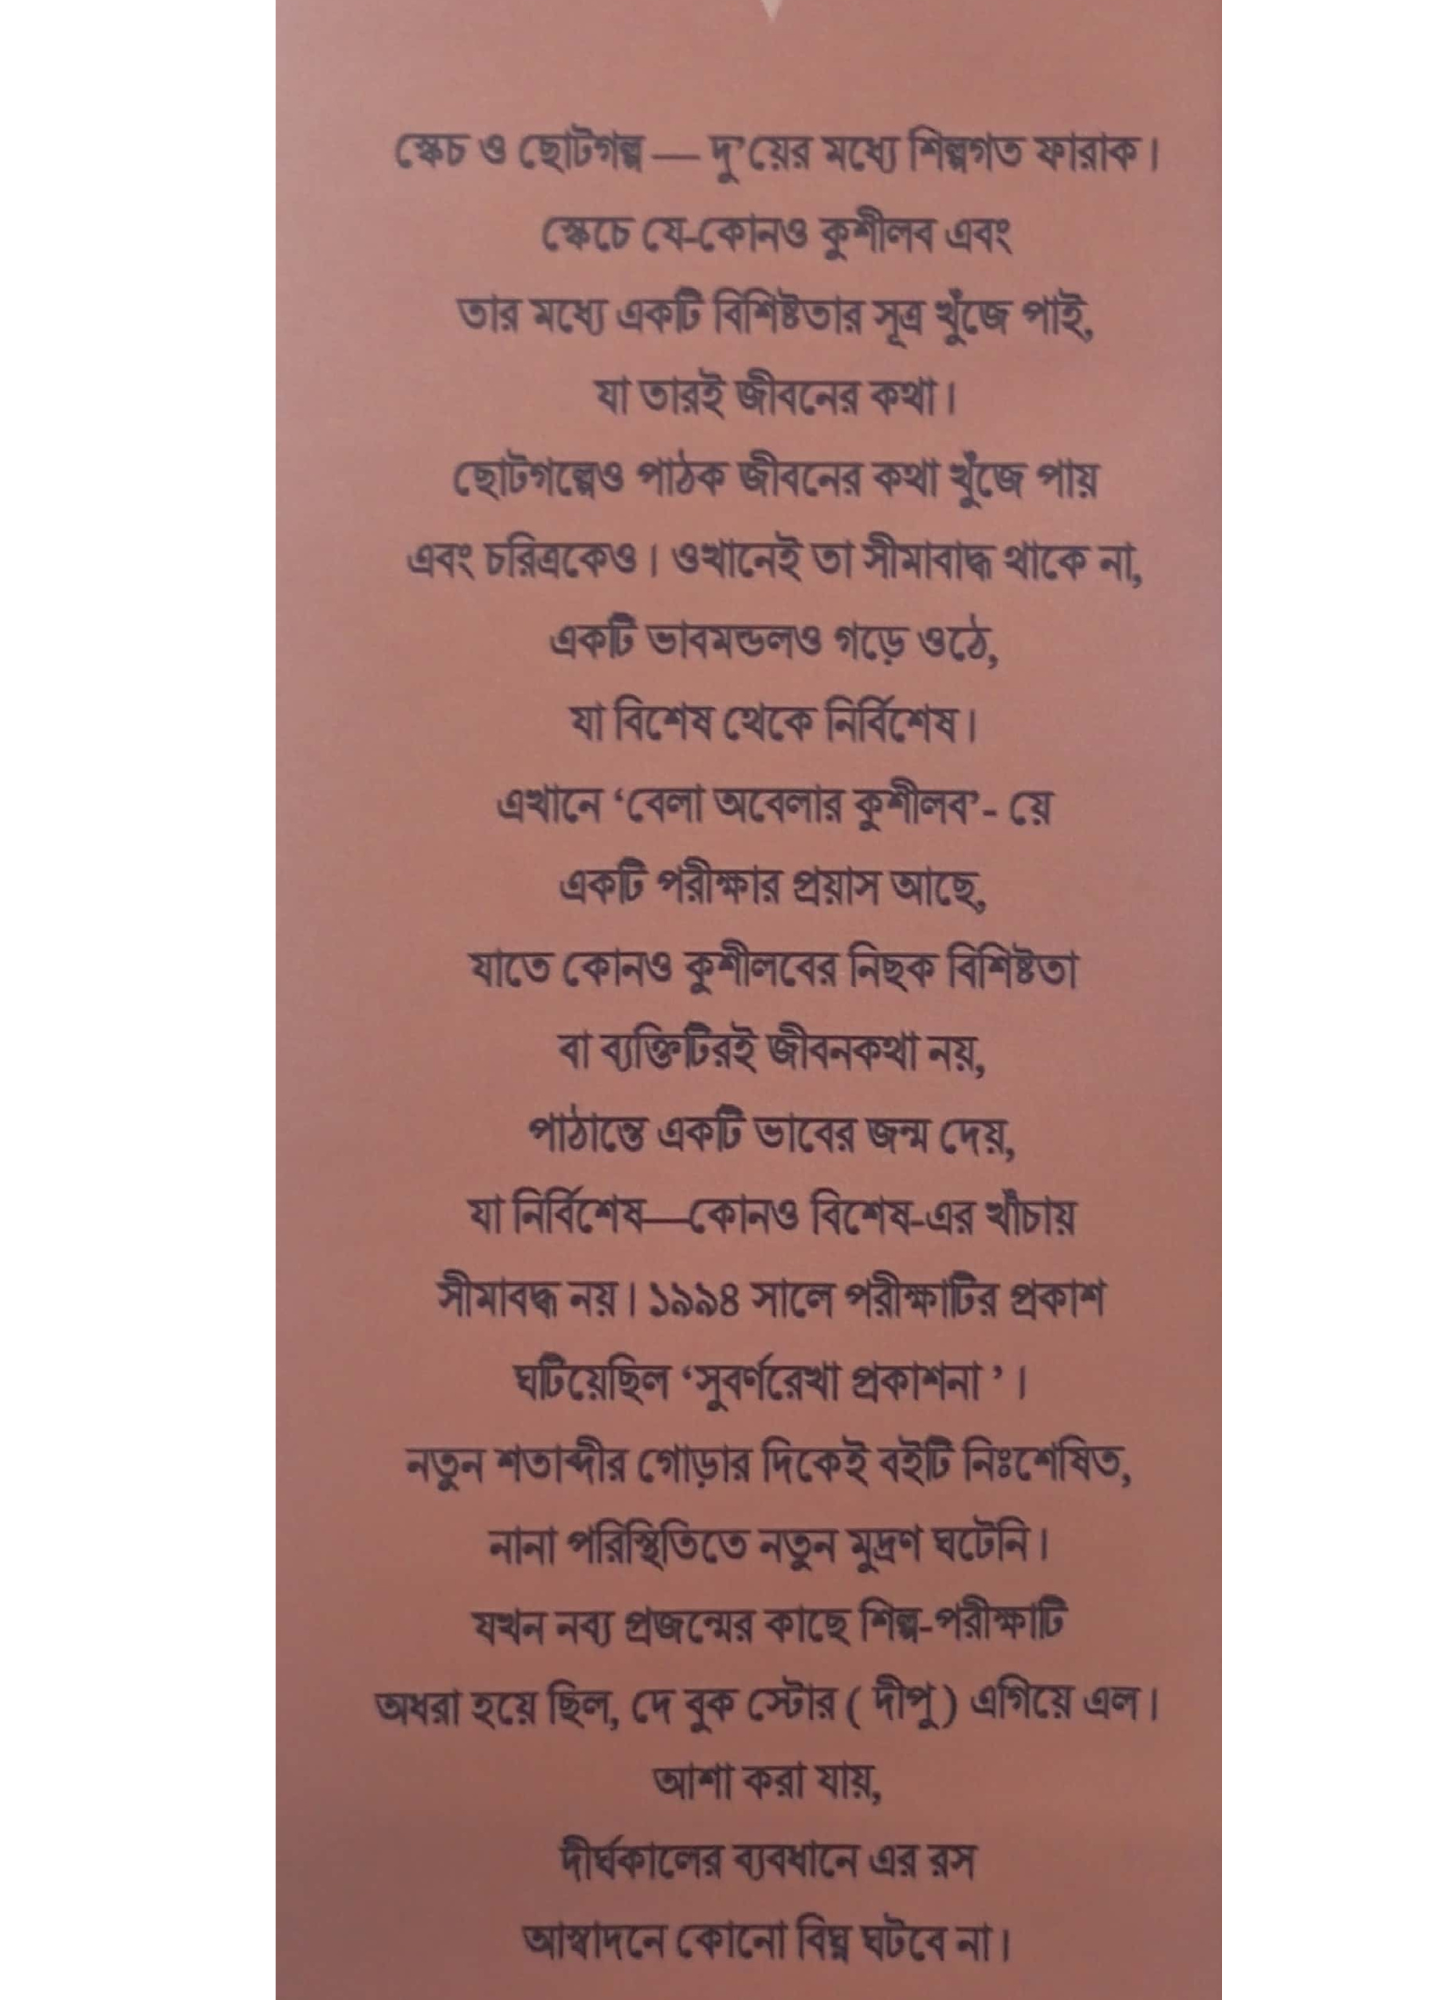 স্কেচ ও ছোটগল্প — দু'য়ের মধ্যে শিল্পগত ফারাক।
স্কেচে যে-কোনও কুশীলব এবং
তার মধ্যে একটি বিশিষ্টতার সূত্র খুঁজে পাই,
যা তারই জীবনের কথা।
ছোটগল্পেও পাঠক জীবনের কথা খুঁজে পায়
এবং চরিত্রকেও। ওখানেই তা সীমাবাদ্ধ থাকে না,
একটি ভাবমন্ডলও গড়ে ওঠে,
যা বিশেষ থেকে নির্বিশেষ।
এখানে ‘বেলা অবেলার কুশীলব’- য়ে
একটি পরীক্ষার প্রয়াস আছে,
যাতে কোনও কুশীলবের নিছক বিশিষ্টতা
বা ব্যক্তিটিরই জীবনকথা নয়,
পাঠান্তে একটি ভাবের জন্ম দেয়,
যা নির্বিশেষ—কোনও বিশেষ-এর খাঁচায়
সীমাবদ্ধ নয়। ১৯৯৪ সালে পরীক্ষাটির প্রকাশ
ঘটিয়েছিল ‘সুবর্ণরেখা প্রকাশনা ’।
নতুন শতাব্দীর গোড়ার দিকেই বইটি নিঃশেষিত,
নানা পরিস্থিতিতে নতুন মুদ্রণ ঘটেনি।
যখন নব্য প্রজন্মের কাছে শিল্প-পরীক্ষাটি
অধরা হয়ে ছিল, দে বুক স্টোর ( দীপু ) এগিয়ে এল।
আশা করা যায়,
দীর্ঘকালের ব্যবধানে এর রস
আস্বাদনে কোনো বিঘ্ন ঘটবে না।